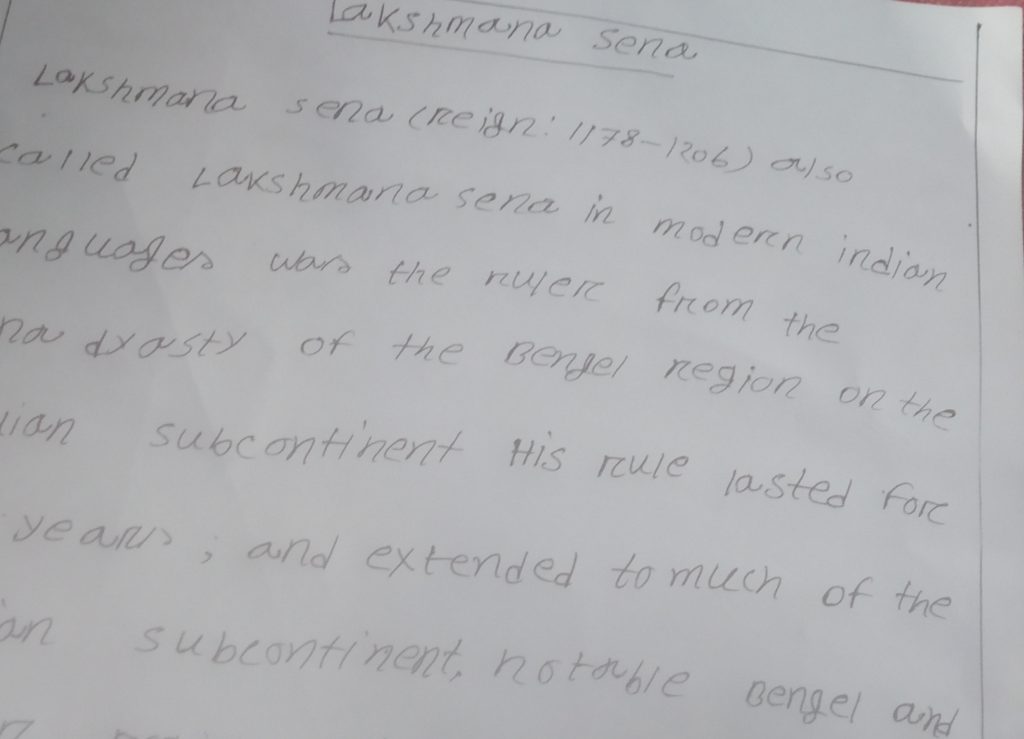 Lakshmana sena
Lakshmana sena (Reign: 1178-1206) also
called Lakshmana sena in modern indian
anguages was the ruler from the
na dyasty of the Bengel region on the
ian subcontinent His rule lasted for
years, and extended to much of the
an subcontinent, notable Bengel and